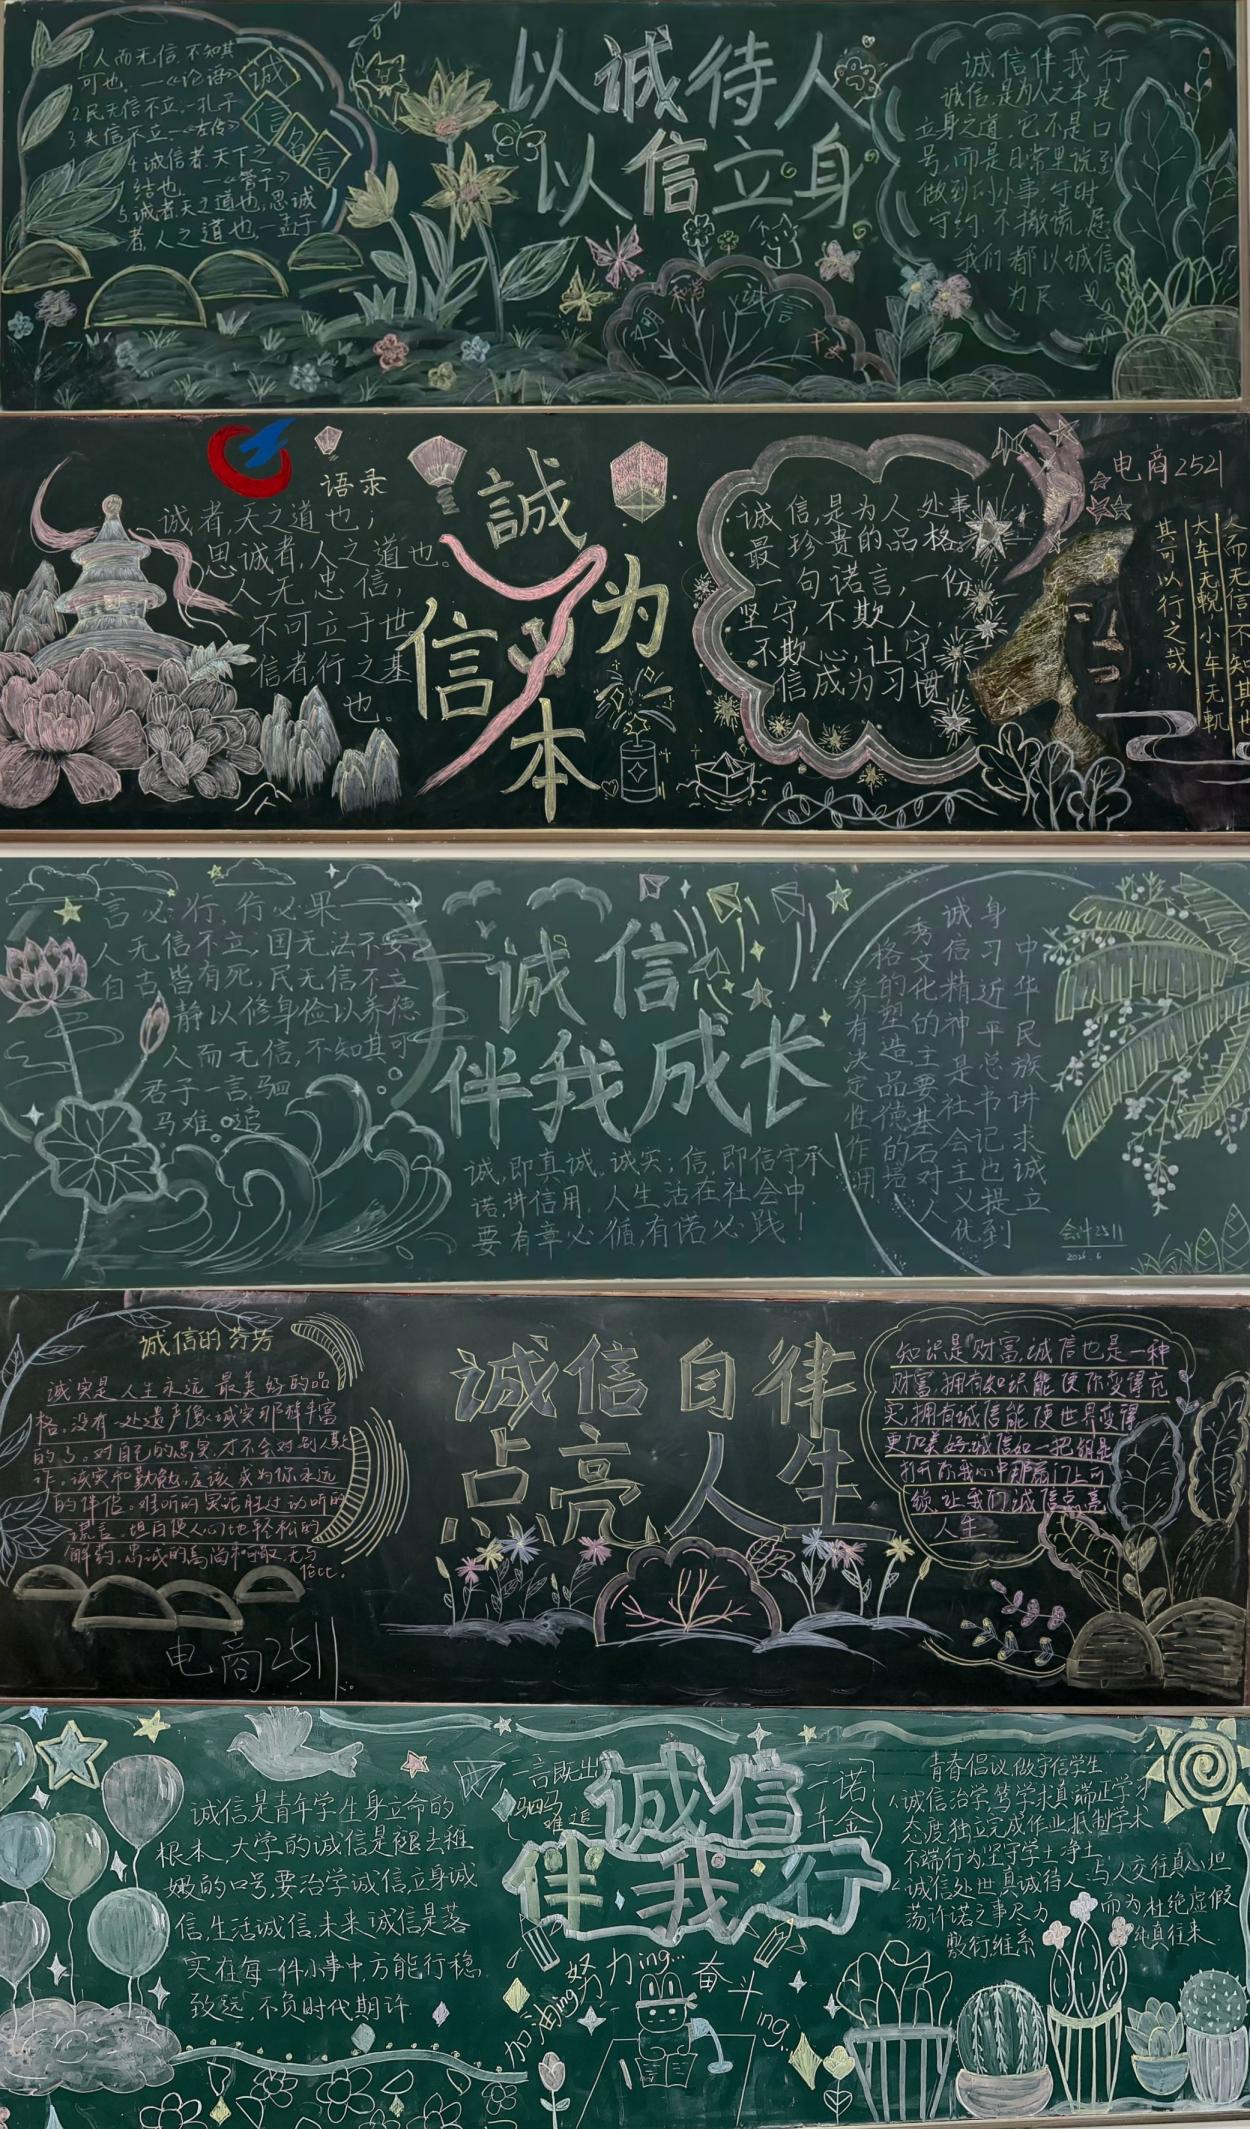 1.人而无信,不知其
可也。——《论语》
2.民无信不立。—孔子
3.失信不立—《左传》
4.诚信者,天下之
结也。——《管子》
5.诚者,天之道也;思诚
者,人之道也。—孟子
诚
信
名
言
以诚待人
以信立身
诚信伴我行
诚信,是为人之本,是
立身之道。它不是口
号,而是日常里说到
做到的小事:守时
守约、不撒谎。愿
我们都以诚信
为尺
语录
诚者,天之道也;
思诚者,人之道也。
人无忠信,
不可立于世
信者,行之基
也。
誠
信
为
本
诚信,是为人处事
最珍贵的品格。
一句诺言,一份
坚守,不欺人
不欺心,让守
信成为习惯
电商2521
人而无信不知其也
大车无輗小车无軏
其可以行之哉
言必行,行必果
人无信不立,国无法不安
自古皆有死,民无信不立
静以修身俭以养德
人而无信,不知其可
君子一言,驷
马难追
诚信
伴我成长
诚,即真诚、诚实;信,即信守承
诺,讲信用。人生活在社会中,
要有章必循,有诺必践!
中华民族讲求诚立
身习近平总书记也提到
诚信精神是社会主义优
秀文化的主要基石对人
格的塑造品德的培
养有决定性作用
会计2511
2026.6
诚信的芬芳
诚实是人生永远最美好的品
格。没有一处遗产像诚实那样丰富
的了。对自己的忠实,才不会对别人欺
诈。诚实和勤勉,应该成为你永远
的伴侣。难听的实话胜过动听的
谎言。坦白使人心地轻松的
解药。忠诚的高尚和可敬,无与
伦比。
电商2511
诚信自律
点亮人生
知识是财富,诚信也是一种
财富,拥有知识能使你变得充
实,拥有诚信能使世界变得
更加美好,诚信如一把钥匙
打开你我心中那扇门上的
锁,让我们诚信点亮
人生
诚信是青年学生身立命的
根本,大学的诚信是褪去稚
嫩的口号,要治学诚信,立身诚
信,生活诚信,未来诚信是落
实在每一件小事中,方能行稳
致远,不负时代期许.
一言既出
驷马
难追
诚信
伴我行
一诺
千金
加油ing
努力ing...
奋斗ing...
青春倡议,做守信学生
1.诚信治学,笃学求真端正学习
态度独立完成作业抵制学术
不端行为坚守学士净土.
2.诚信处世,真诚待人:与人交往真心坦
荡许诺之事尽为
而为杜绝虚假
敷衍维系
纯真往来.